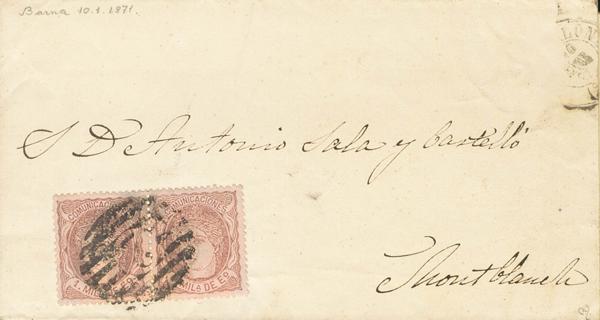 Barna 10.1.1871.
LON
S D Antonio Sala y Castelló
COMUNICACIONES COMUNICACIONES
1. MI MILS DE EO
Montblanch